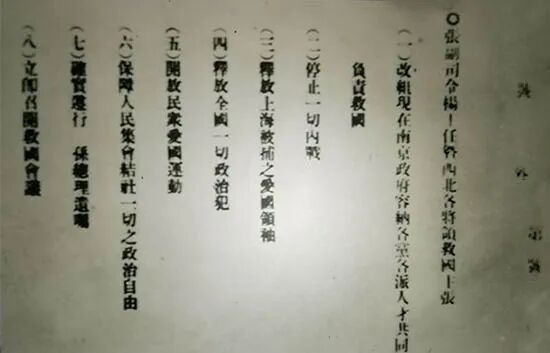 號外
◎張副司令楊主任暨西北各將領救國主張
(一)改組現在南京政府容納各黨各派人才共同
負責救國
(二)停止一切內戰
(三)釋放上海被捕之愛國領袖
(四)釋放全國一切政治犯
(五)開放民衆愛國運動
(六)保障人民集會結社一切之政治自由
(七)確實遵行 孫總理遺囑
(八)立即召開救國會議